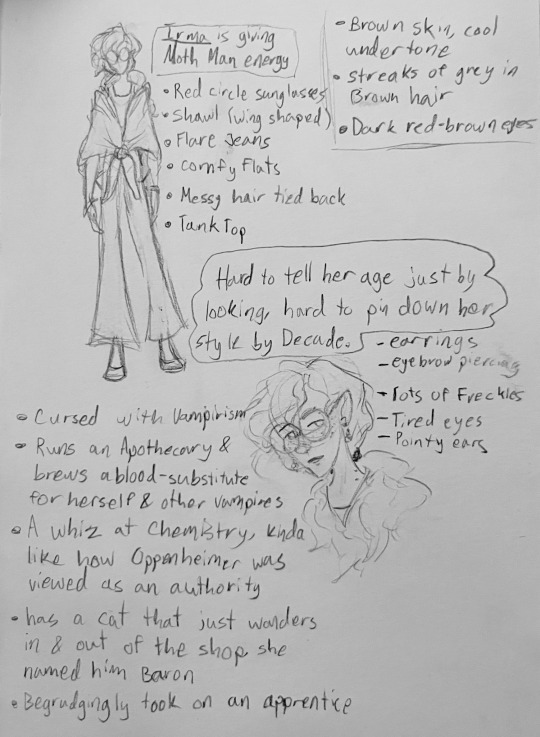 Irma is giving
Moth Man energy
• Red circle sunglasses
• Shawl (wing shaped)
• Flare Jeans
• comfy flats
• Messy hair tied back
• Tank Top
• Brown skin, cool
undertone
• streaks of grey in
Brown hair
• Dark red-brown eyes
Hard to tell her age just by
looking, hard to pin down her
style by Decade.
- earrings
- eyebrow piercing
- lots of Freckles
- Tired eyes
- Pointy ears
• Cursed with Vampirism
• Runs an Apothecary &
brews a blood-substitute
for herself & other vampires
• A whiz at Chemistry, kinda
like how Oppenheimer was
viewed as an authority
• has a cat that just wanders
in & out of the shop, she
named him Baron
• Begrudgingly took on an apprentice